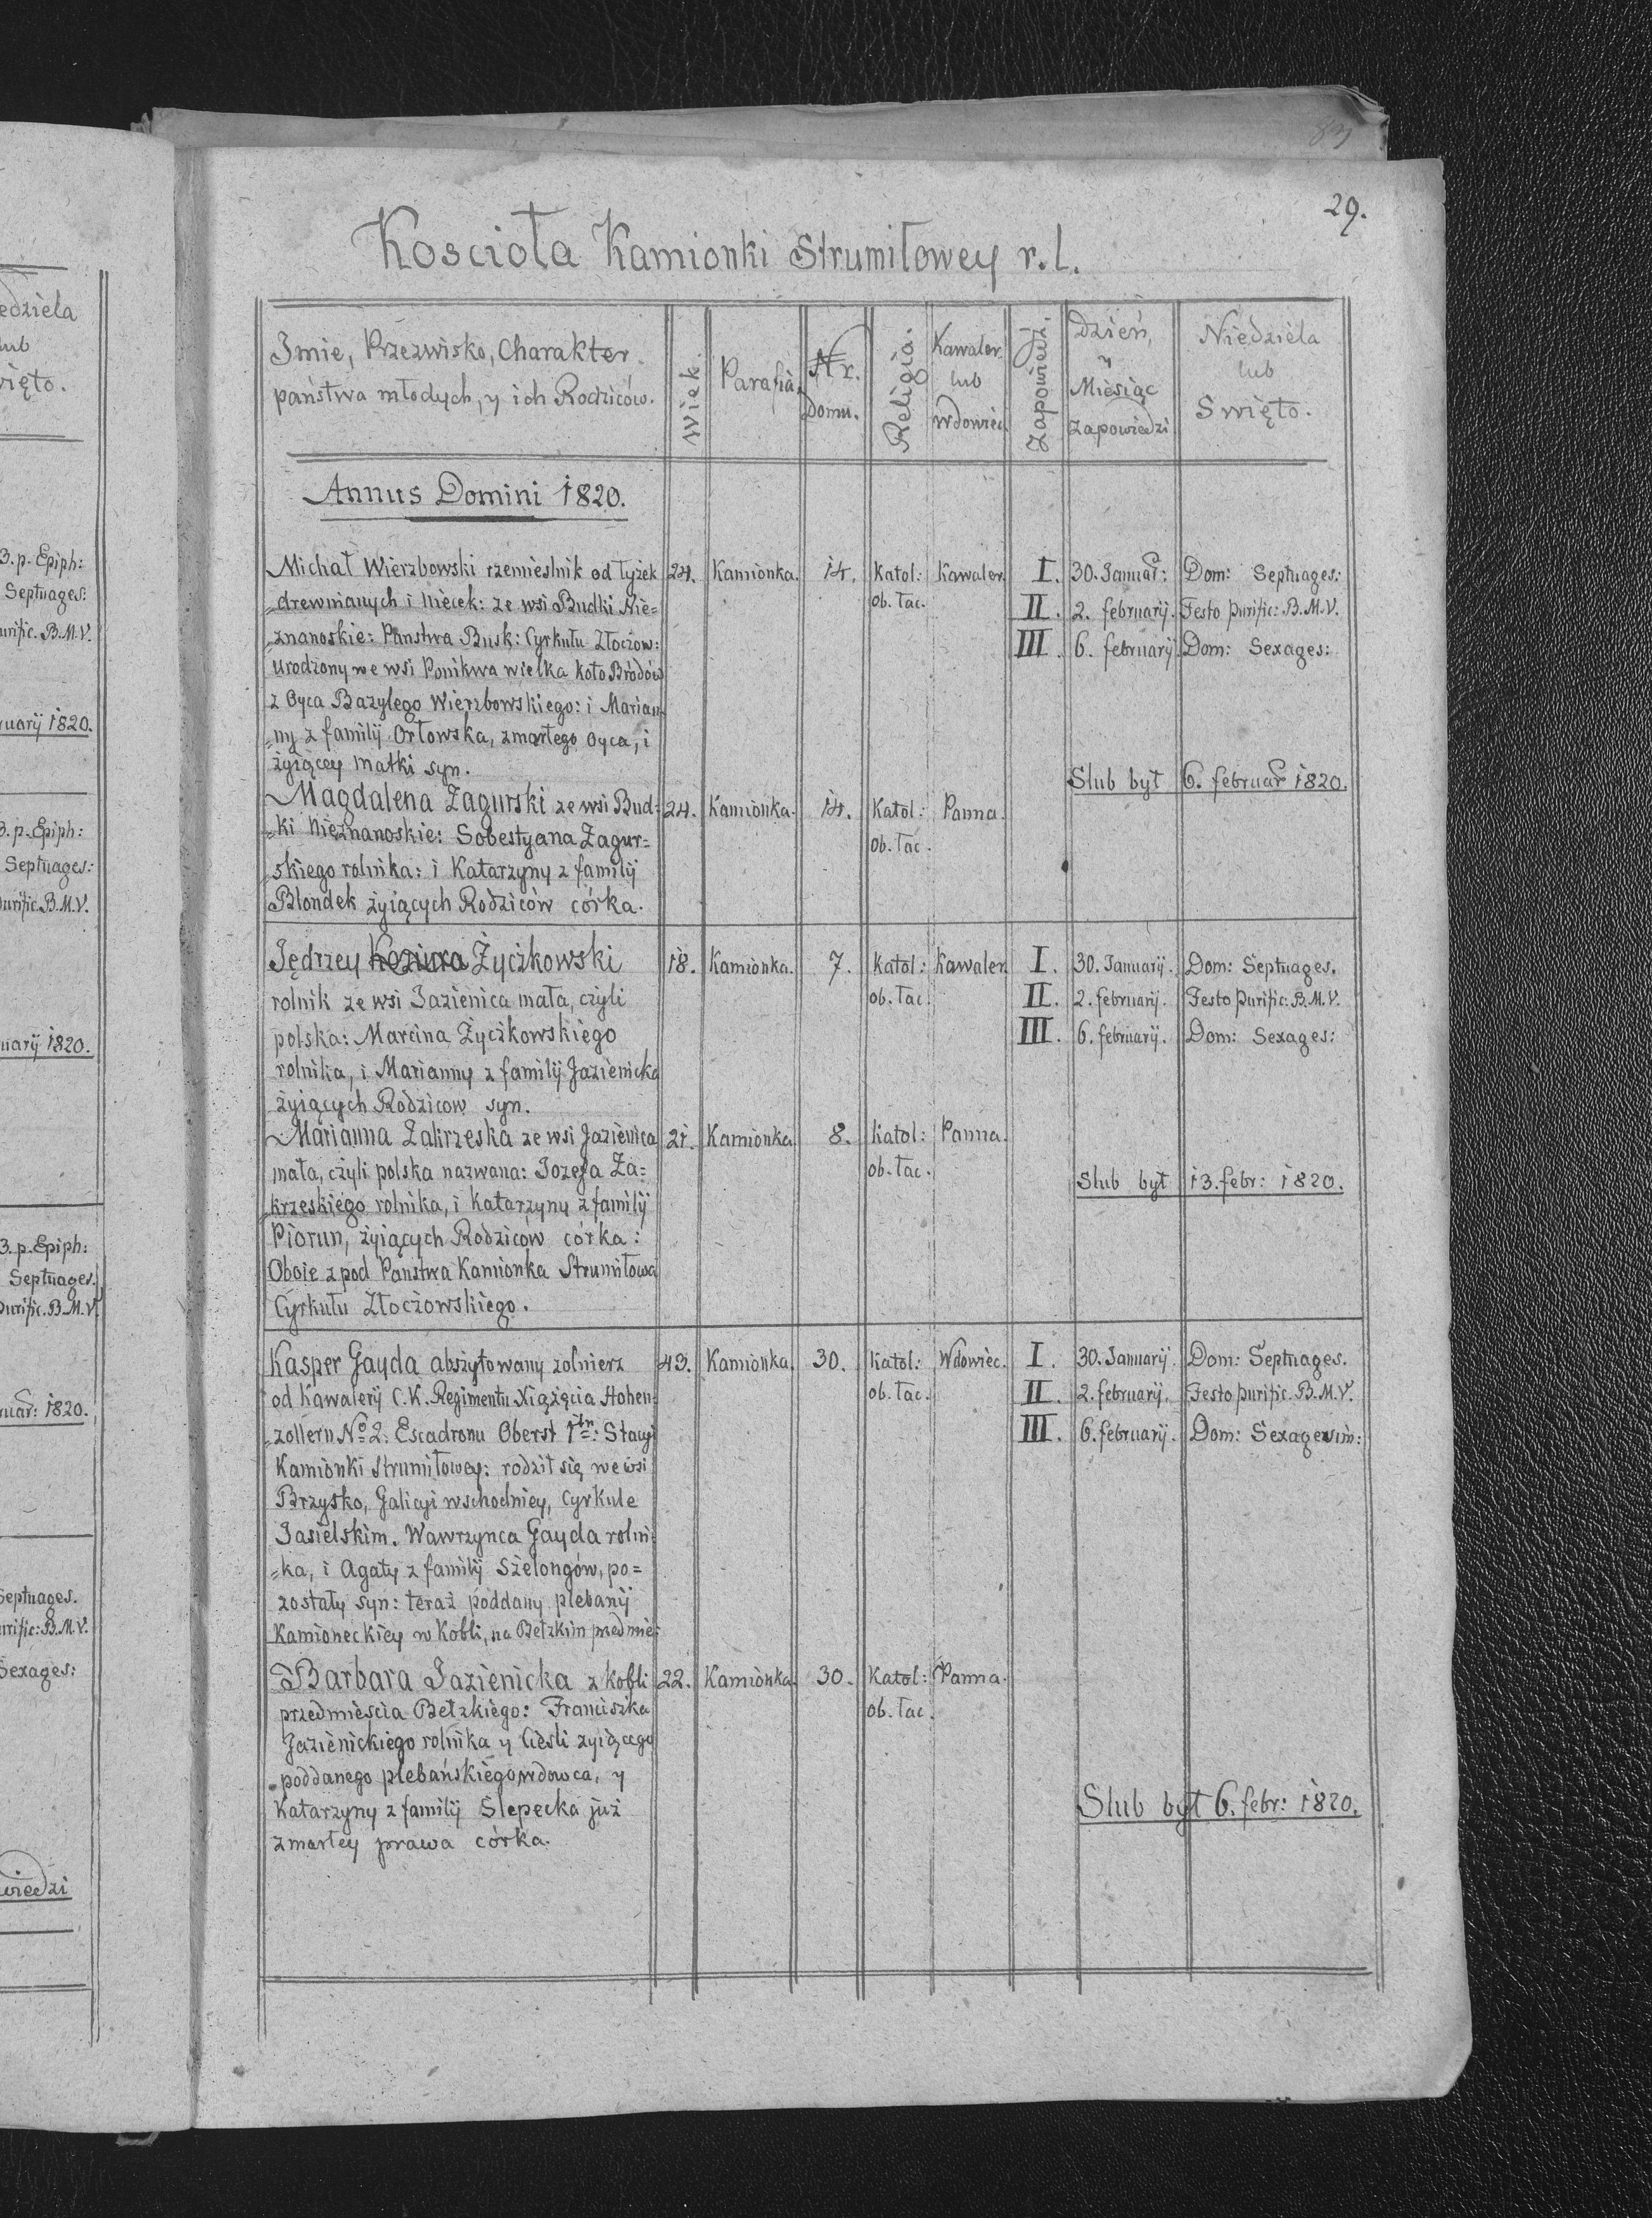 83
29.
Kościoła Kamionki Strumiłowey r. l.
Imie, Przezwisko, Charakter
państwa młodych, y ich Rodziców.
Wiek.
Parafia.
Nr. domu.
Religia.
Kawaler lub Wdowiec.
Zapowiedzi.
Dzień, y Miesiąc zapowiedzi
Niedziela lub Swięto.
Annus Domini 1820.
Michał Wierzbowski rzemieslnik od łyżek 24. Kamionka. 14. Katol: Kawaler. I. 30. Januar: Dom: Septuages:
drewnianych i niecek: ze wsi Budki Nie= ob. łac. II. 2. februarij. Festo purific: B.M.V.
znanoskie: Panstwa Busk: Cyrkułu Złoczow: III. 6. februarij Dom: Sexages:
urodzony we wsi Ponikwa wielka koło Brodów
z Oyca Bazylego Wierzbowskiego: i Marian=
ny z familij Orłowska, zmarłego oyca, i
żyiącey matki syn.
Slub był 6. februar 1820.
Magdalena Zagurski ze wsi Bud= 24. Kamionka. 14. Katol: Panna.
ki Nieznanoskie: Sobestyana Zagur= ob. łac.
skiego rolnika: i Katarzyny z familij
Blondek żyiących Rodziców córka.
Jędrzey Koziura Życzkowski 18. Kamionka. 7. Katol: Kawaler. I. 30. Januarij. Dom: Septuages.
rolnik ze wsi Jazienica mała, czyli ob. łac. II. 2. februarij. Festo purific: B.M.V.
polska: Marcina Życzkowskiego III. 6. februarij. Dom: Sexages:
rolnika, i Marianny z familij Jazienicka
żyiących Rodzicow syn.
Marianna Zakrzeska ze wsi Jazienica 21. Kamionka. 8. Katol: Panna.
mała, czyli polska nazwana: Jozefa Za= ob. łac.
Slub był 13. febr: 1820.
krzeskiego rolnika, i Katarzyny z familij
Piorun, żyiących Rodziców córka:
Oboie z pod Panstwa Kamionka Strumiłowa
Cyrkułu Złoczowskiego.
Kasper Gayda abszytowany zolnierz 43. Kamionka. 30. Katol: Wdowiec. I. 30. Januarij. Dom: Septuages.
od Kawalerij C.K. Regimentu Xiążęcia Hohen= ob. łac. II. 2. februarij. Festo purific. B.M.V.
zollern No 2: Escadronu Oberst 1tn: Stacyi III. 6. februarij. Dom: Sexagesim:
Kamionki Strumiłowey: rodził się we wsi
Brzysko, Galicyi wschodniey, Cyrkule
Jasielskim. Wawrzynca Gayda rolni=
ka, i Agaty z familij Szelongów, po=
zostały syn: teraz poddany plebanij
Kamioneckiey w Kobli, na Bełzkim przedmie:
Barbara Jazienicka z kobli 22. Kamionka. 30. Katol: Panna.
przedmieścia Bełzkiego: Franciszka ob. łac.
Jazienickiego rolnika y Cieśli zyiącego
poddanego plebańskiego wdowca, y
Katarzyny z familij Slepecka już
Slub był 6. febr: 1820.
zmarłey prawa córka.
edziela
lub
więto.
3. p. Epiph:
Septuages:
urific. B.M.V.
uarij 1820.
3. p. Epiph:
Septuages:
purific. B.M.V.
uarij 1820.
3. p. Epiph:
Septuages.
purific. B.M.V.
ruar: 1820.
Septuages.
urific: B.M.V.
Sexages:
wiedzi